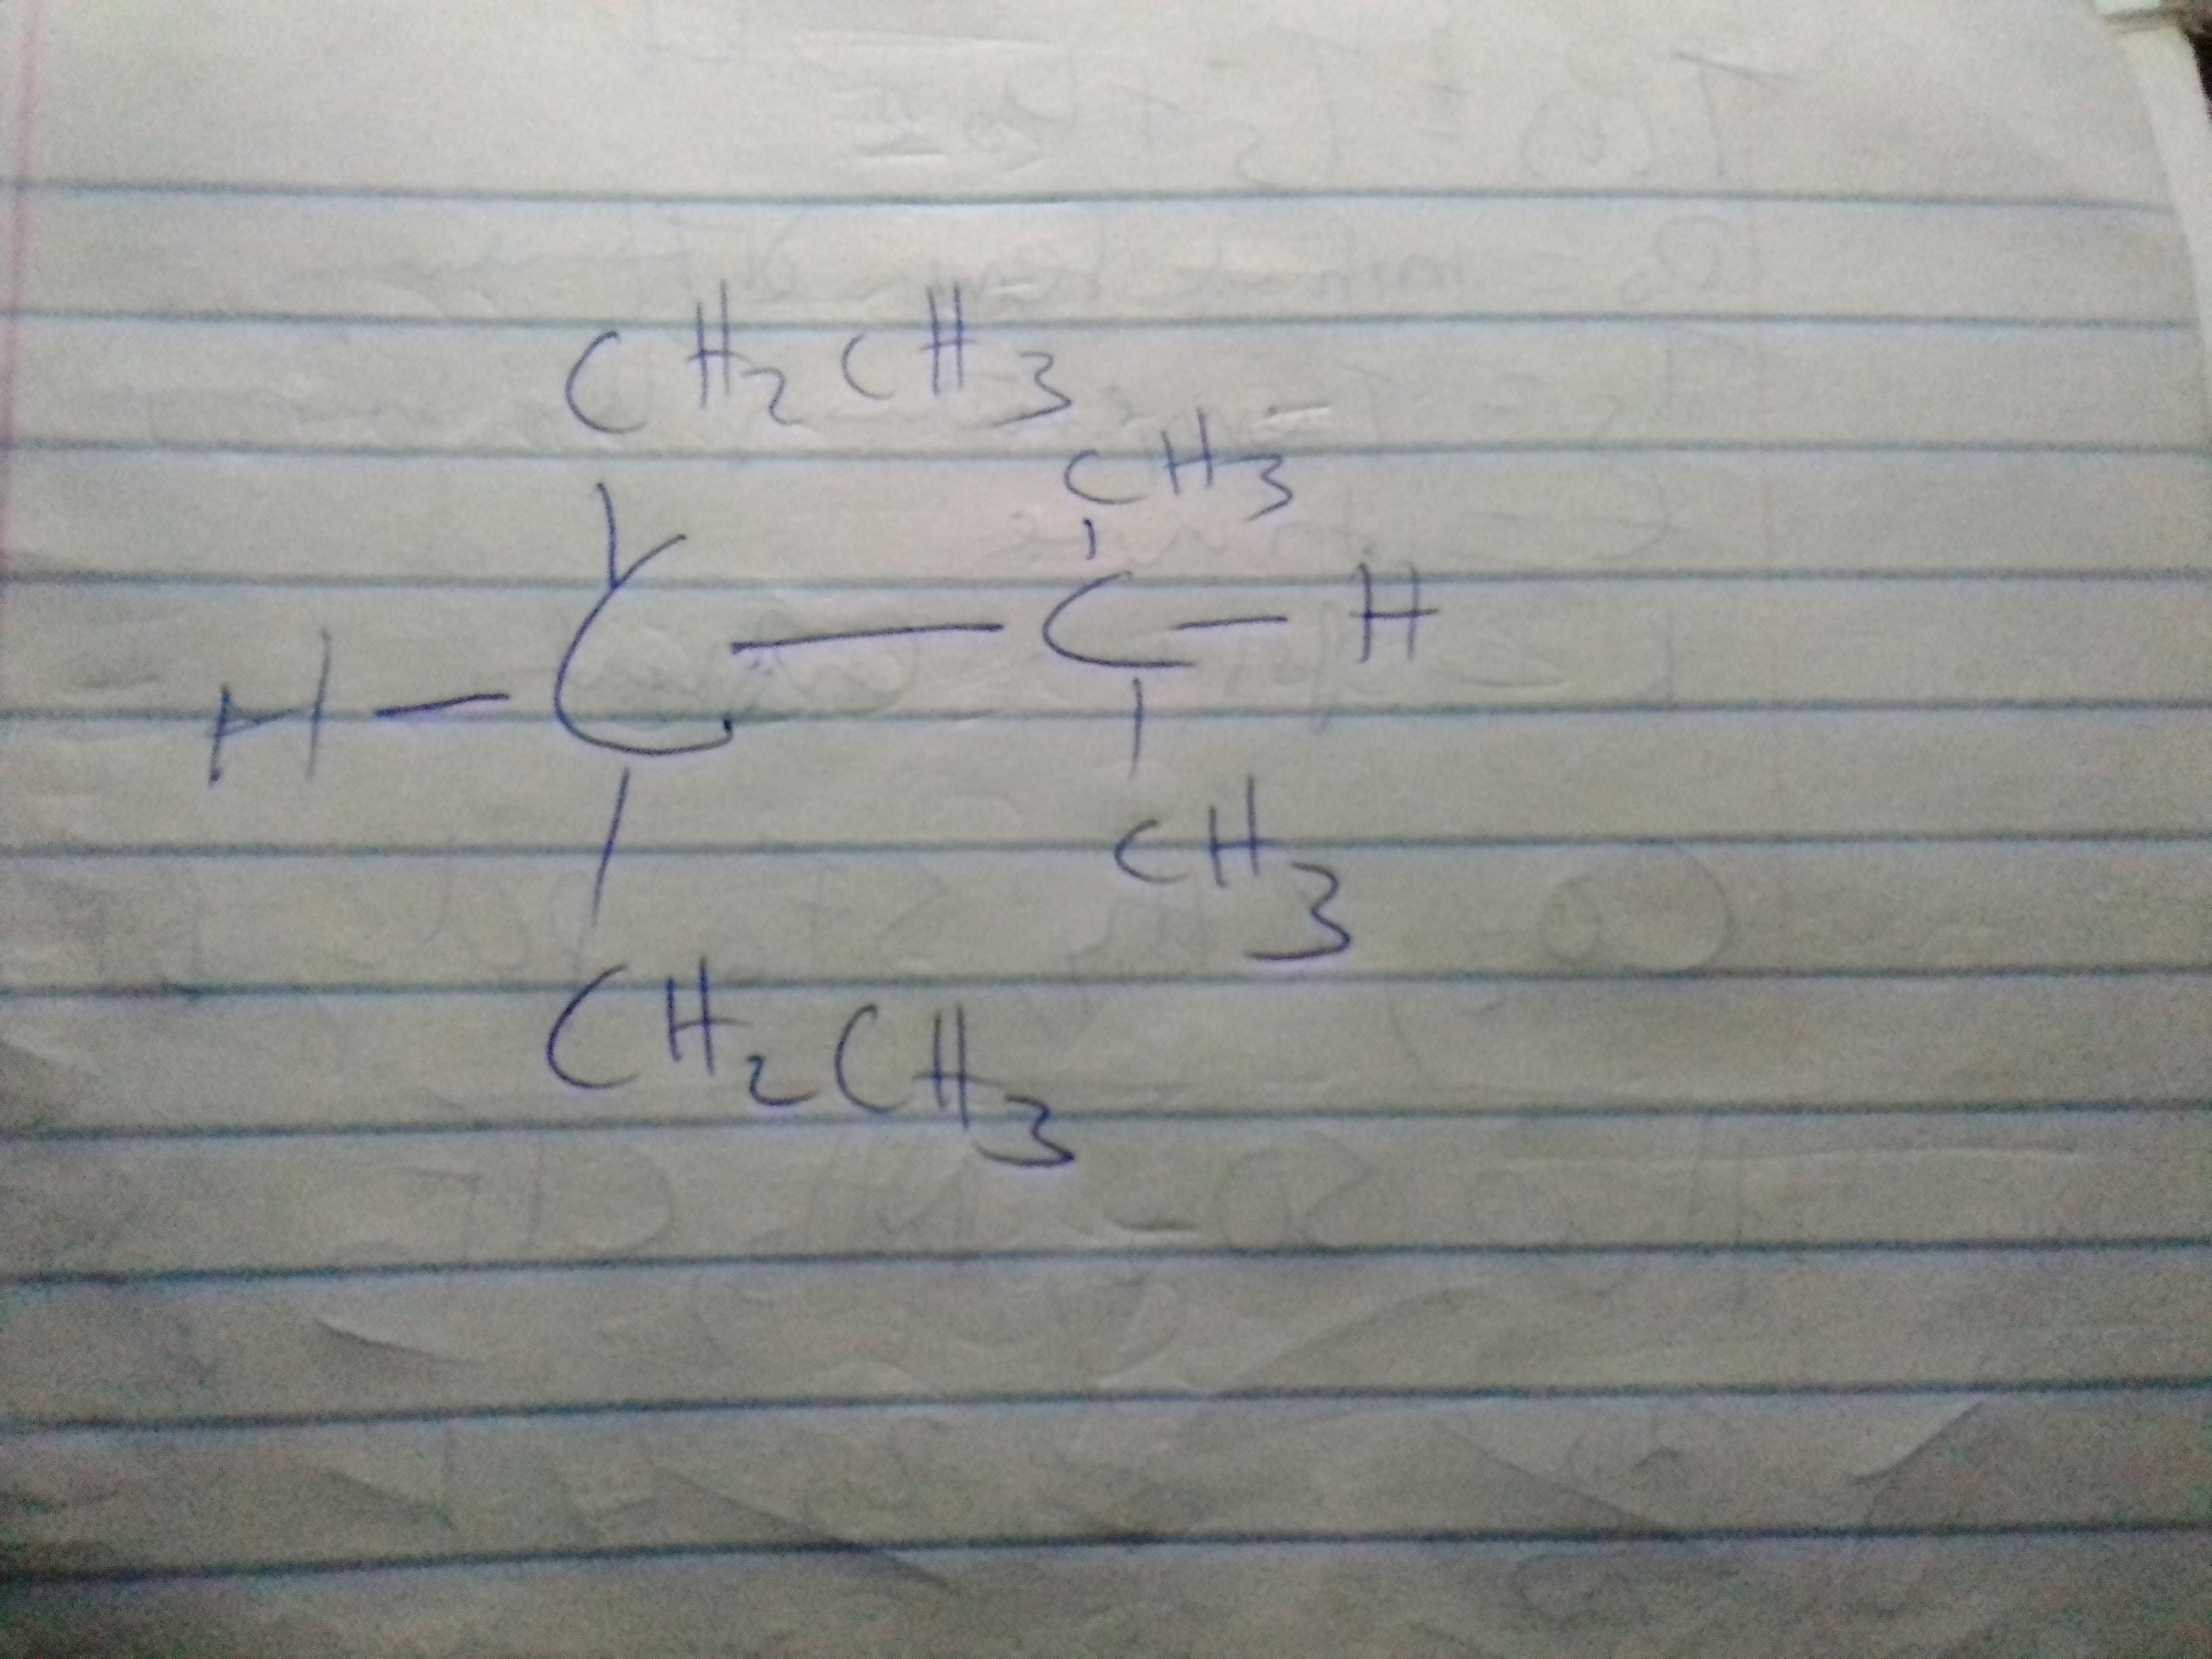 CH2CH3
CH3
H - C - C - H
CH3
CH2CH3